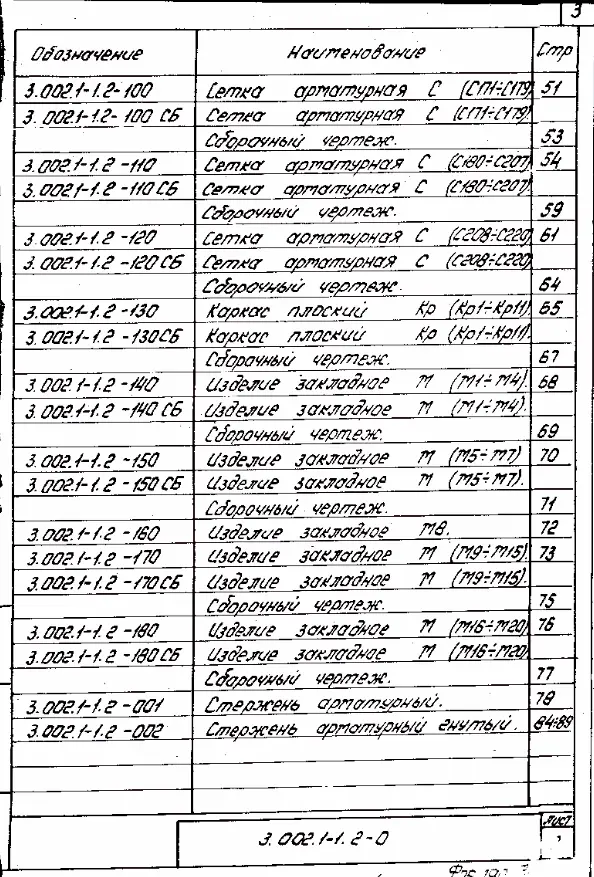 3
Обозначение Наименование Стр
3.002.1-1.2-100 Сетка арматурная С (С171÷С179) 51
3.002.1-1.2-100 СБ Сетка арматурная С (С171÷С179).
Сборочный чертеж. 53
3.002.1-1.2-110 Сетка арматурная С (С180÷С207) 54
3.002.1-1.2-110СБ Сетка арматурная С (С180÷С207)
Сборочный чертеж. 59
3.002.1-1.2-120 Сетка арматурная С (С208÷С220) 61
3.002.1-1.2-120СБ Сетка арматурная С (С208÷С220)
Сборочный чертеж. 64
3.002.1-1.2-130 Каркас плоский Кр (Кр1÷Кр11) 65
3.002.1-1.2-130СБ Каркас плоский Кр (Кр1÷Кр11).
Сборочный чертеж. 67
3.002.1-1.2-140 Изделие закладное М (М1÷М4). 68
3.002.1-1.2-140СБ Изделие закладное М (М1÷М4).
Сборочный чертеж. 69
3.002.1-1.2-150 Изделие закладное М (М5÷М7) 70
3.002.1-1.2-150СБ Изделие закладное М (М5÷М7).
Сборочный чертеж. 71
3.002.1-1.2-160 Изделие закладное М8. 72
3.002.1-1.2-170 Изделие закладное М (М9÷М15). 73
3.002.1-1.2-170СБ Изделие закладное М (М9÷М15).
Сборочный чертеж. 75
3.002.1-1.2-180 Изделие закладное М (М16÷М20) 76
3.002.1-1.2-180СБ Изделие закладное М (М16÷М20)
Сборочный чертеж. 77
3.002.1-1.2-001 Стержень арматурный. 78
3.002.1-1.2-002 Стержень арматурный гнутый. 84÷89
3.002.1-1.2-0
Лист